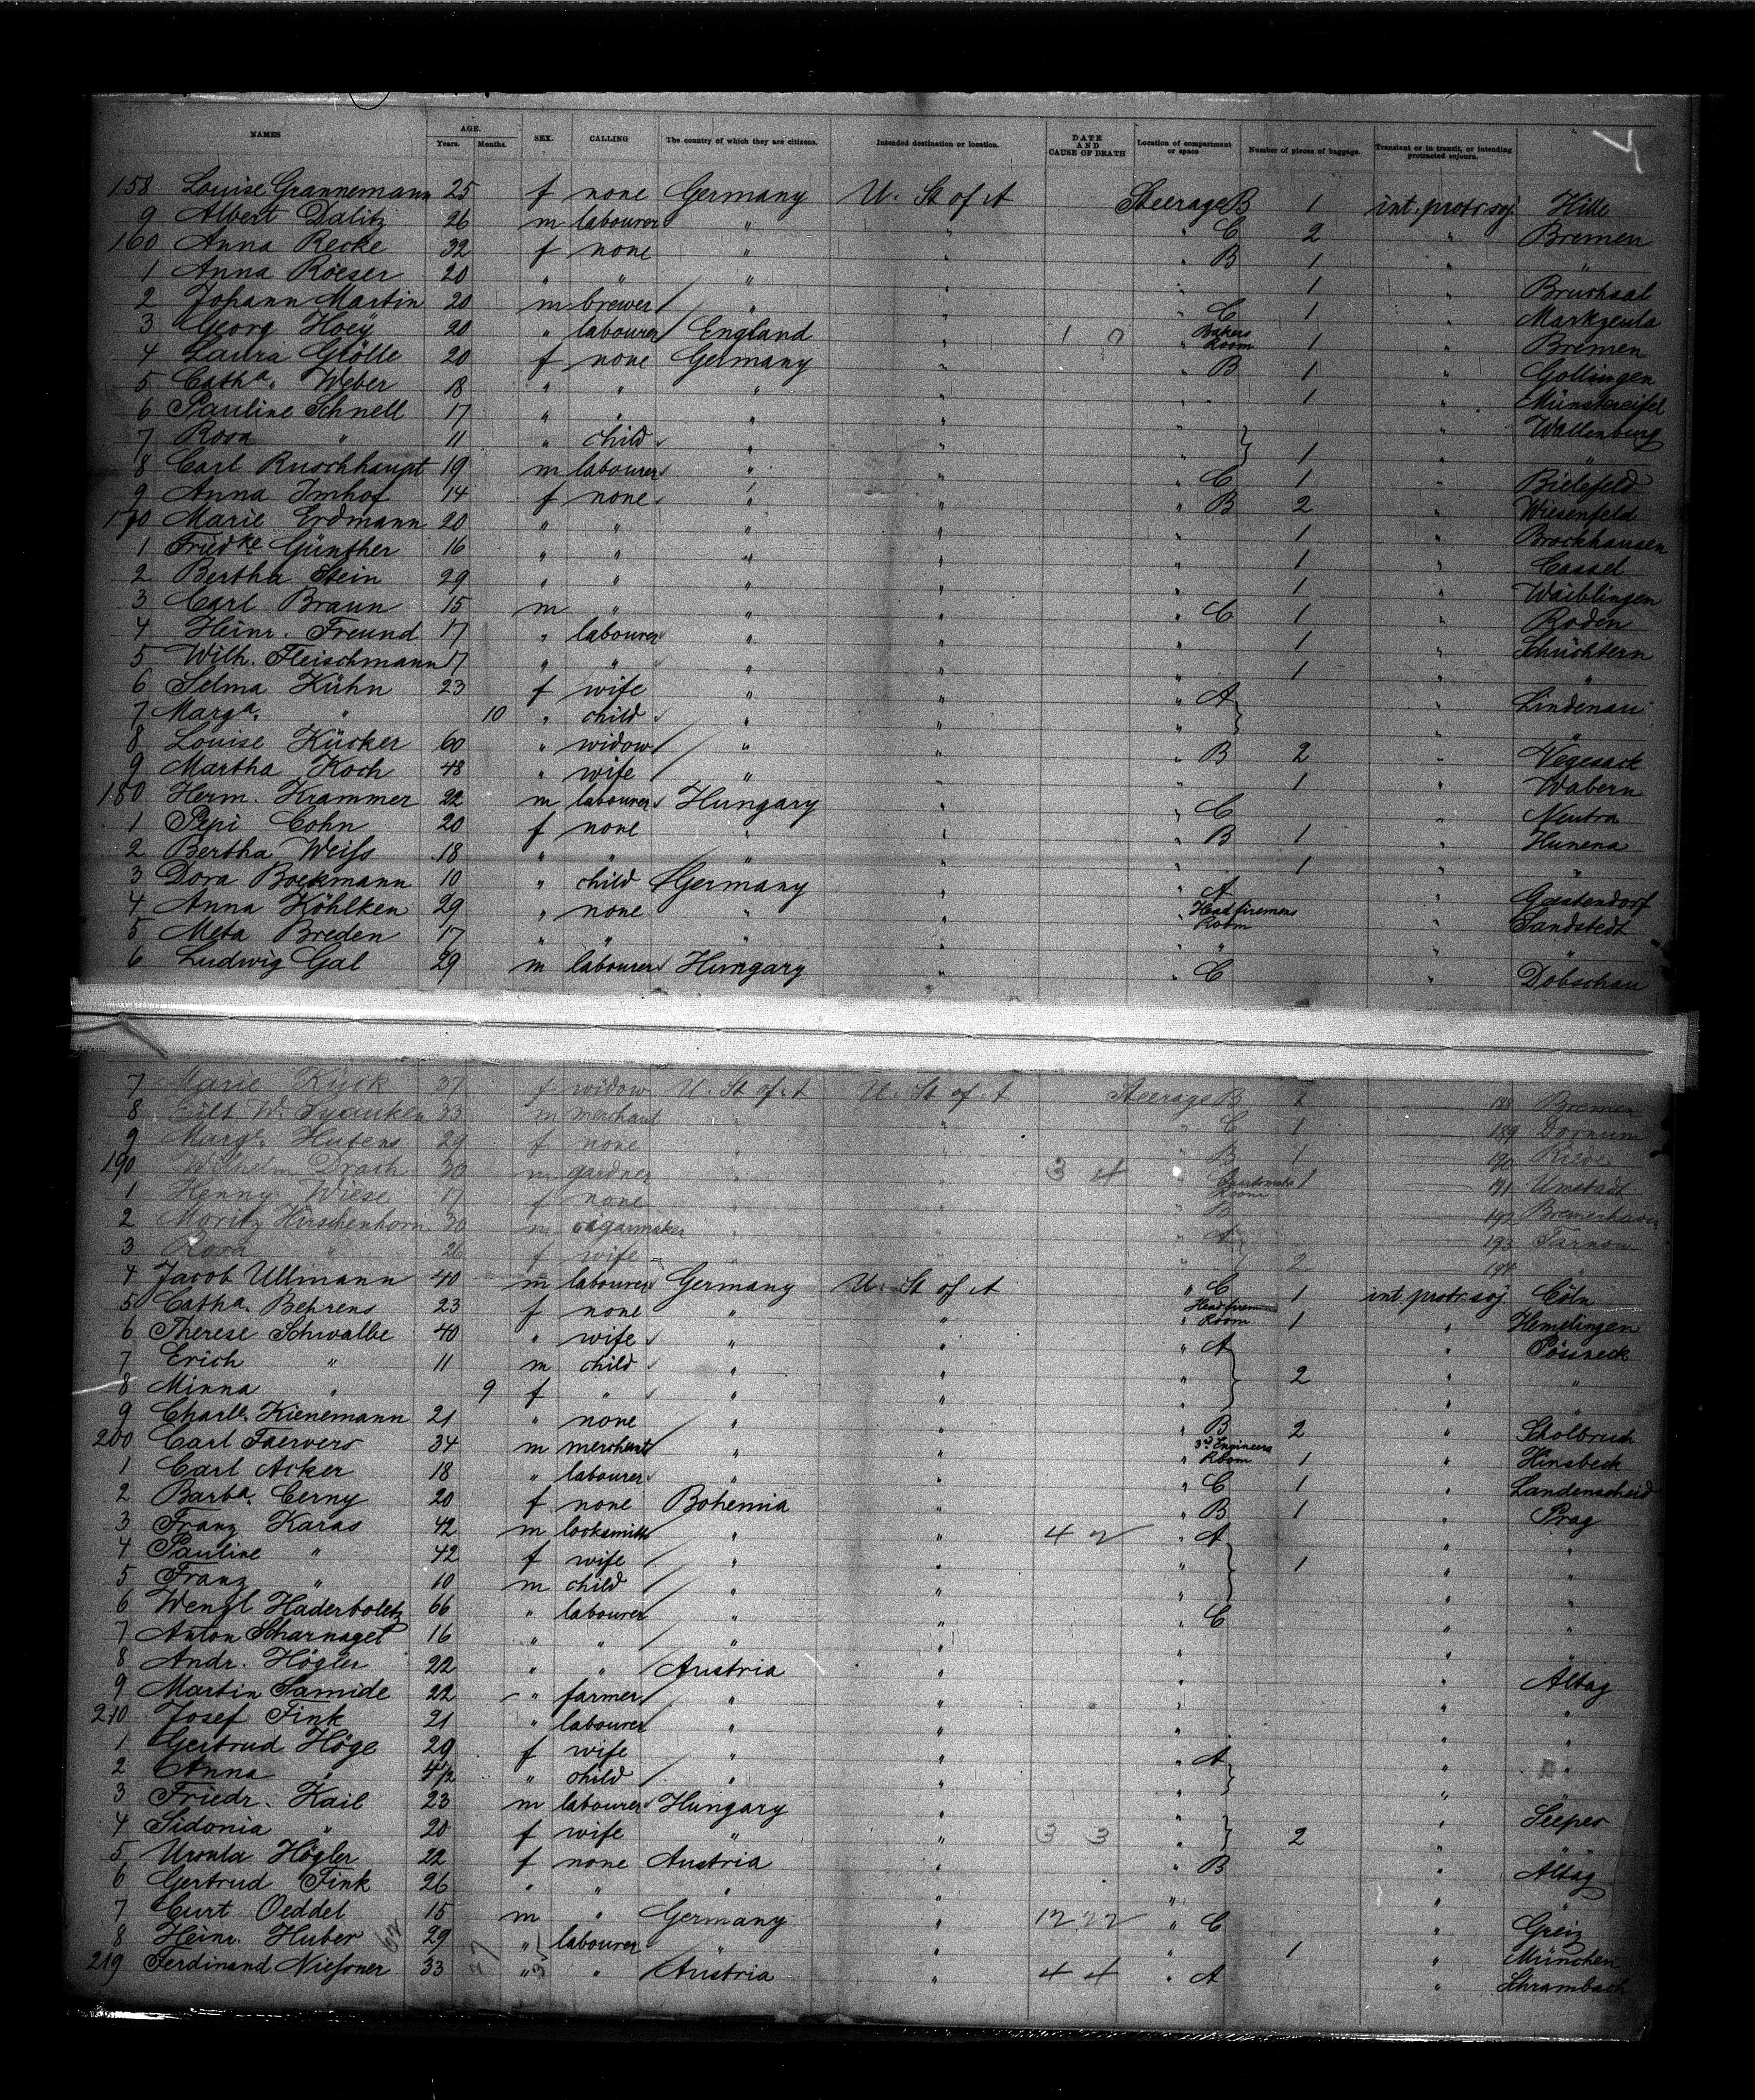 NAMES AGE. Years. Months. SEX. CALLING The country of which they are citizens. Intended destination or location. DATE AND CAUSE OF DEATH Location of compartment or space Number of pieces of baggage. Transient or in transit, or intending protracted sojourn.
158 Louise Grannemann 25 f none Germany U. St of A Steerage B 1 int. protr. soj. Hille
9 Albert Dalitz 26 m labourer " " " C 2 " Bremen
160 Anna Recke 32 f none " " " B 1 " "
1 Anna Röeser 20 " " " " " 1 " Bruchsal
2 Johann Martin 20 m brewer " " " C 1 " Markzeula
3 Georg Hoey 20 " labourer England " 1 " Bakers Room 1 " Bremen
4 Laura Glölle 20 f none Germany " " B 1 " Gollingen
5 Catha. Weber 18 " " " " " 1 " Münstereifel
6 Pauline Schnell 17 " " " " " " Wallenburg
7 Rosa " 11 " child " " " 1 " "
8 Carl Ruschhaupt 19 m labourer " " " C 1 " Bielefeld
9 Anna Imhof 14 f none " " " B 2 " Wiesenfeld
170 Marie Erdmann 20 " " " " " 1 " Brockhausen
1 Friedke Günther 16 " " " " " 1 " Cassel
2 Bertha Stein 29 " " " " " 1 " Waiblingen
3 Carl Braun 15 m " " " " C 1 " Roden
4 Heinr. Freund 17 " labourer " " " 1 " Schüchtern
5 Wilh. Fleischmann 17 " " " " " 1 " "
6 Selma Kühn 23 f wife " " " A " Lindenau
7 Marga. " 10 " child " " " " "
8 Louise Kücker 60 " widow " " " B 2 " Vegesack
9 Martha Koch 48 " wife " " " 1 " Wabern
180 Herm. Krammer 22 m labourer Hungary " " C " Neutra
1 Pepi Cohn 20 f none " " " B 1 " Hunena
2 Bertha Weiss 18 " " " " " 1 " "
3 Dora Boekmann 10 " child Germany " " A " Geestendorf
4 Anna Köhlken 29 " none " " " Head firemens Room " Sandstedt
5 Meta Breden 17 " " " " " " " "
6 Ludwig Gal 29 m labourer Hungary " " C " Dobschau
7 Marie Kück 37 f widow U. St of A U. St of A Steerage B 1 188 Bremen
8 Eilt W. 33 m merchant " " " C 1 189 Dornum
9 Margr. Hutens 29 f none " " " B 1 190
190 Wilhelm Drach 30 m gardner " " 3 4 " Room 1 191 Umstadt
1 Henny Wiese 17 f none " " " B 192 Bremerhaven
2 Moritz Hirschenhorn 30 m cigarmaker " " " A 193 Tarnow
3 Rosa " 26 f wife " " " 2 194 "
4 Jacob Ullmann 40 m labourer Germany U. St of A " C 1 int. protr. soj Cöln
5 Catha. Behrens 23 f none " " " Head firem Room 1 " Hemelingen
6 Therese Schwalbe 40 " wife " " " A " Pössneck
7 Erich " 11 m child " " " 2 " "
8 Minna " 9 f " " " " " "
9 Charle. Kienemann 21 " none " " " B 2 " Stolbruch
200 Carl Faervers 34 m merchant " " " 3rd Engineers Room 1 " Hinsbeck
1 Carl Acker 18 " labourer " " " C 1 " Landenscheid
2 Barba. Cerny 20 f none Bohemia " " B 1 " Prag
3 Franz Karas 42 m locksmith " " 4 2 " A " "
4 Pauline " 42 f wife " " " 1 " "
5 Franz " 10 m child " " " " "
6 Wenzl Haderboletz 66 " labourer " " " C " "
7 Anton Scharnagel 16 " " " " " " "
8 Andr. Högler 22 " " Austria " " " Altag
9 Martin Samide 22 " farmer " " " " "
210 Josef Fink 21 " labourer " " " " "
1 Gertrud Höge 29 f wife " " " A " "
2 Anna " 4/12 " child " " " " "
3 Friedr. Kail 23 m labourer Hungary " " " Seeper
4 Sidonia " 20 f wife " " 3 3 " 2 " "
5 Ursula Högler 22 f none Austria " " B " Altag
6 Gertrud Fink 26 " " " " " " "
7 Curt Oeddel 15 m " Germany " 12 22 " C " Greiz
8 Heinr. Huber 29 " labourer " " " 1 " München
219 Ferdinand Niessner 33 " " Austria " 4 4 " A " Schrambach